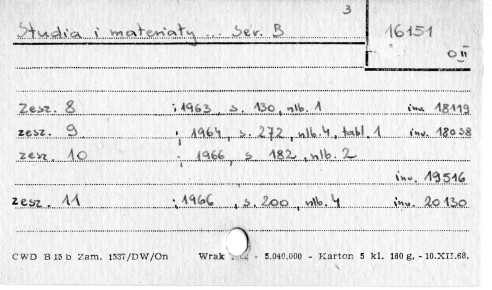 3
Studia i materiały ... Ser. B
16151
O II
Zesz. 8 ; 1963, s. 130, nlb. 1 inw. 18119
zesz. 9 ; 1964, s. 272, nlb. 4, tabl. 1 inw. 18038
zesz. 10 ; 1966, s 182, nlb. 2
inw. 19516
zesz. 11 ; 1966, s. 200, nlb. 4 inw. 20130
CWD B 15 b Zam. 1537/DW/On Wrak - 5.040.000 - Karton 5 kl. 180 g. - 10.XII.68.